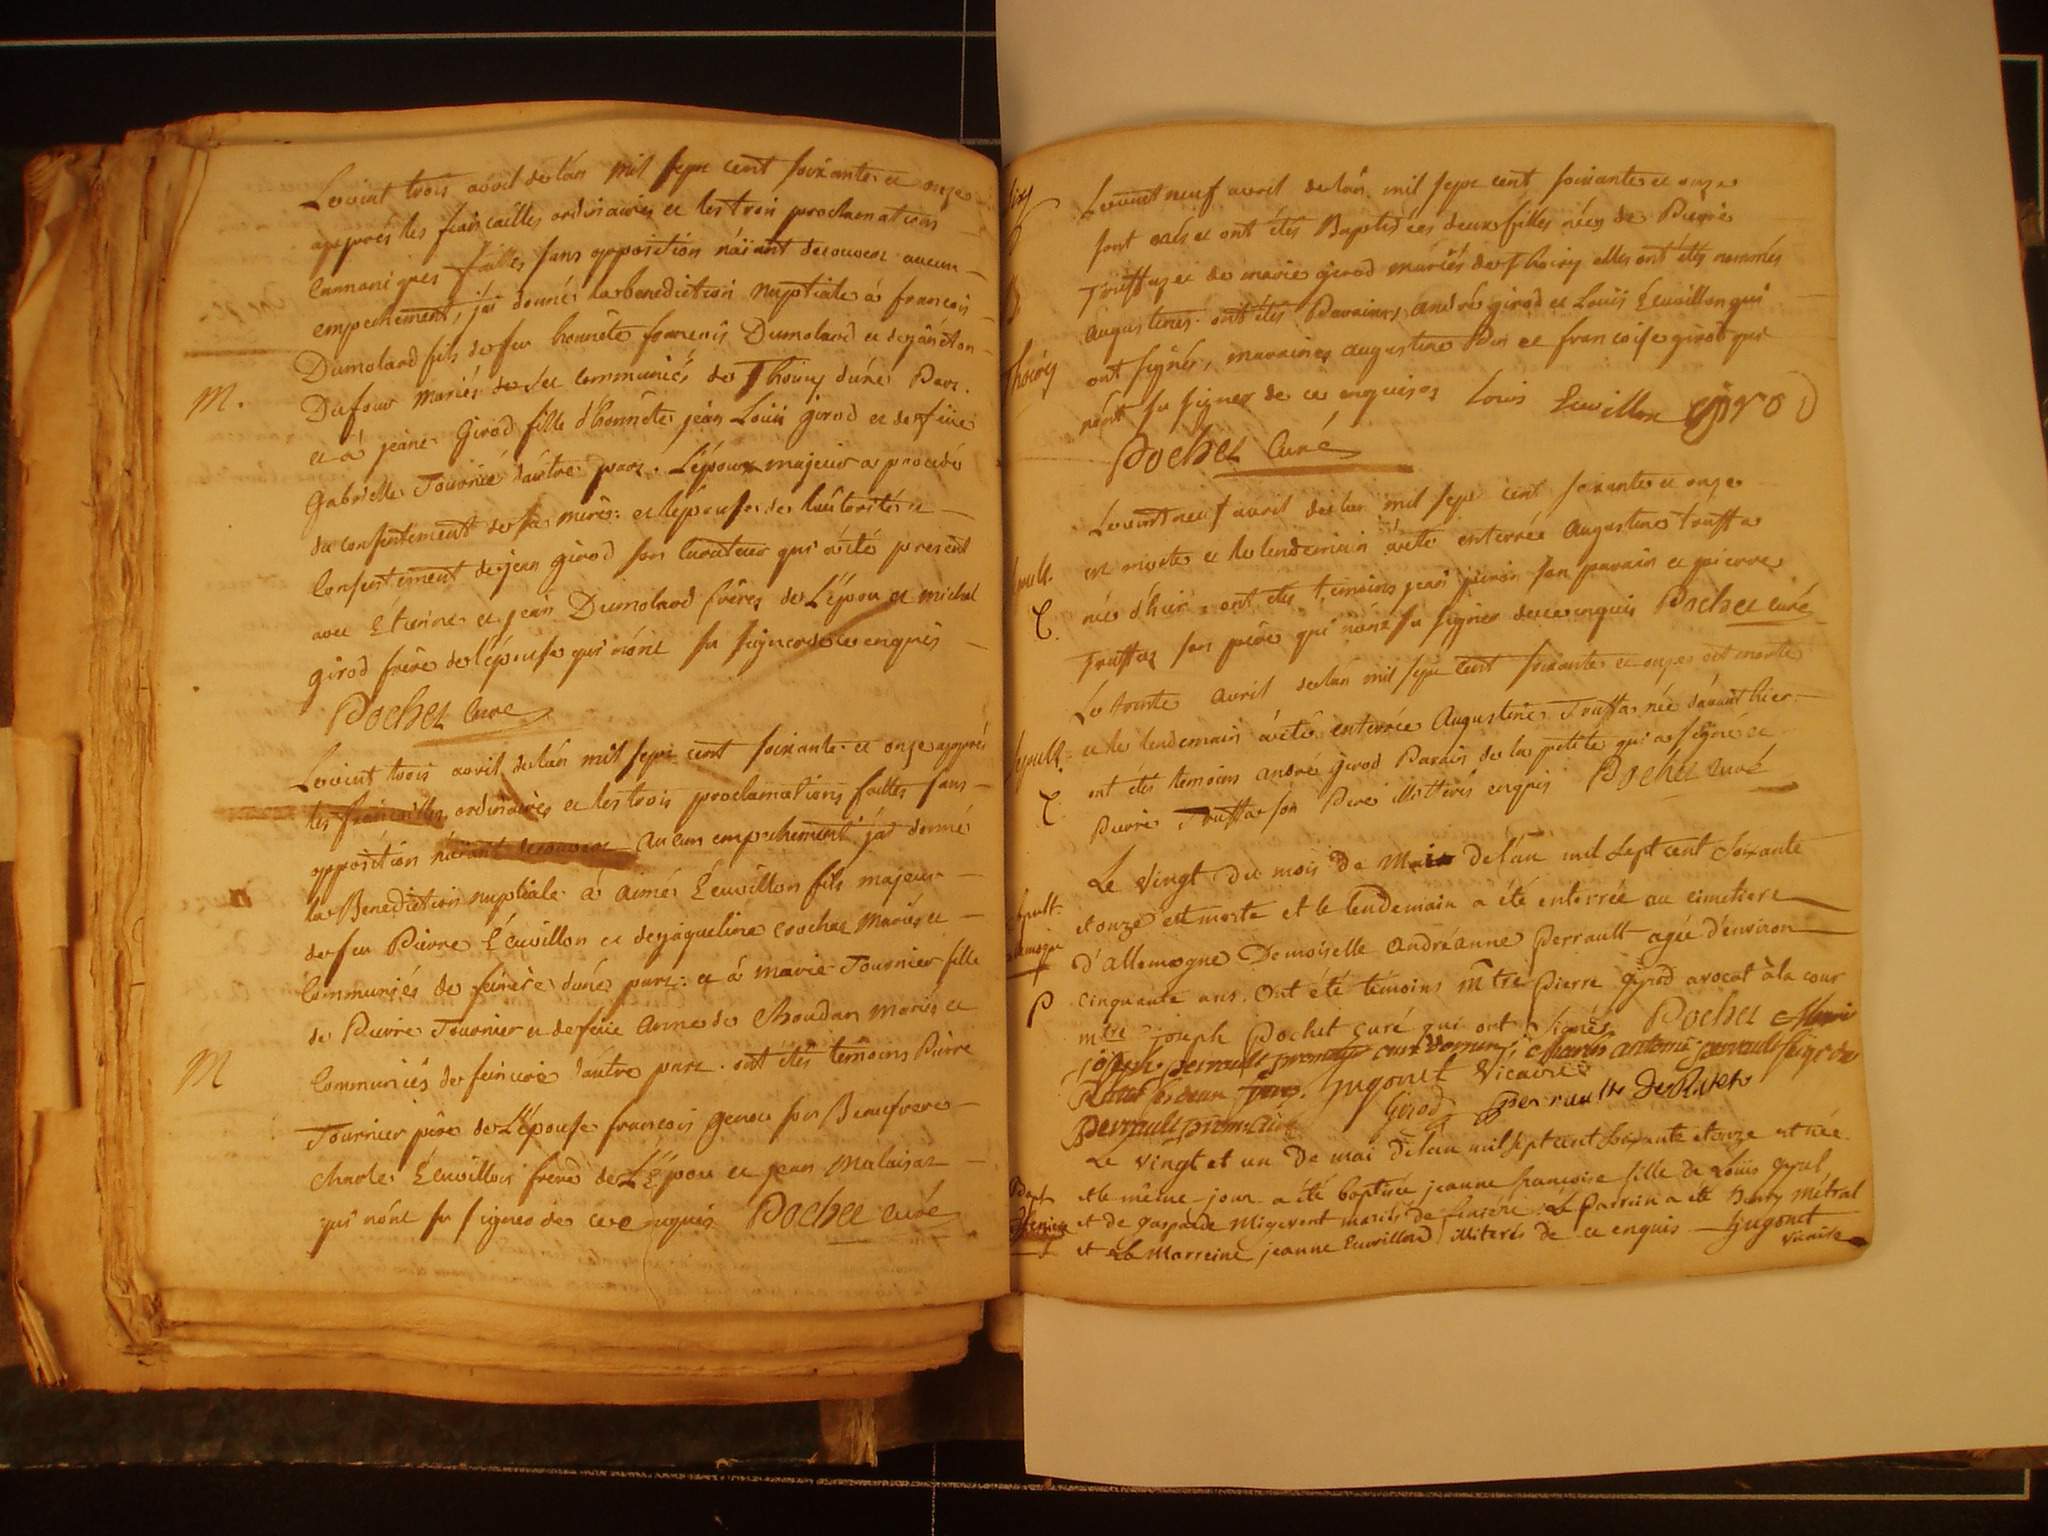 Le vint trois avril de lán mil sept cent soixante et onze
apprés les fiancailles ordinaires et les trois proclamations
cannoniques faittes sans opposition náïant decouvert aucun
empechement, j'ai donné la benediction nuptiale á francois
Dumolard fils de feu honnête francois Dumolard et de jáneton
Dufour mariés de et communiés de Thoiry dúne part.
M.
et á jeáne Girod fille d'honnête jean Loüis girod et de feüe
Gabrielle Tournié d'aûtre part. L'époux majeur a procedé
du consentement de sa mére: et l'épouse de l'aûtorité et
consentement de jean girod son curateur qui a été present
avec Etienne et jean Dumolard fréres de L'époux et michel
girod frére de l'épouse qui n'ónt su signer de ce enquis
Pochet Curé
Le vint trois avril de lán mil sept cent soixante et onze apprés
les fiancailles ordinaires et les trois proclamations faittes sans
opposition náïant decouvert aucun empechement j'ai donné
la Benediction nuptiale á aimé Leuvillon fils majeur
de feu Pierre Leuvillon et de jaqueline crochat mariés et
communiés de feniére dúne part: et á marie Tournier fille
de Pierre Tournier et de feüe anne de Choudan mariés et
M
communiés de feniere d'aûtre part. ont étés temoins Pierre
Tournier pére de L'épouse francois genou son Beaufrere
charle Leuvillon frere de L'époux et jean Malaisat
qui n'ónt su signer de ce enquis Pochet curé
Le vint neuf avril de lán mil sept cent soixante et onze
sont nées et ont étés Baptisées deux filles nées de Pierre
Truffaz et de marie girod mariés de Thoiry elles ont étés nommés
augustines. ont étés Parains andré girod et Loüis Leuvillon qui
Thoiry
ont signés, maraines augustine Pin et francoise girod qui
n'ont su signer de ce enquises Louis Leuvillon girod
Pochet Curé
Le vint neuf avril de lán mil sept cent soixante et onze
Sepult.
est morte et le lendemain a été enterrée Augustine truffa
née d'hier. ont étés témoins jean son parain et pierre
Truffaz son pére qui n'ónt su signer de ce enquis Pochet curé
Le trente avril de lán mil sept cent soixante et onze est morte
Sepult.
et le lendemain a été enterrée Augustine Truffa née d'avant hier
ont étés temoins andré girod Parain de la petite qui a signé et
Pierre Truffa son Pere illitterés enquis Pochet curé
Le vingt du mois de Mai De l'an mil Sept cent Soixante
Sepult.
et onze est morte et le lendemain a été enterrée au cimetiere
d'Allemogne
d'Allemogne Demoiselle Andréanne Perrault agée d'environ
P
cinquante ans. Ont été témoins mtre Pierre Girod avocat à la cour
mtre joseph Pochet curé qui ont signés Pochet
joseph perrault charles antoine perrault
Hugonet Vicaire
perrault girod perrault De Rutet
Le vingt et un De mai De l'an mil sept cent soixante et onze est née
Bapt
et le même jour a été baptisée jeanne francoise fille de Loüis Gyal
feniere
et de gasparde Migevent mariés de feniére. Le Parrain a été Henry Métral
et la Marreine jeanne Leuvillond illiterés de ce enquis Hugonet
vicaire